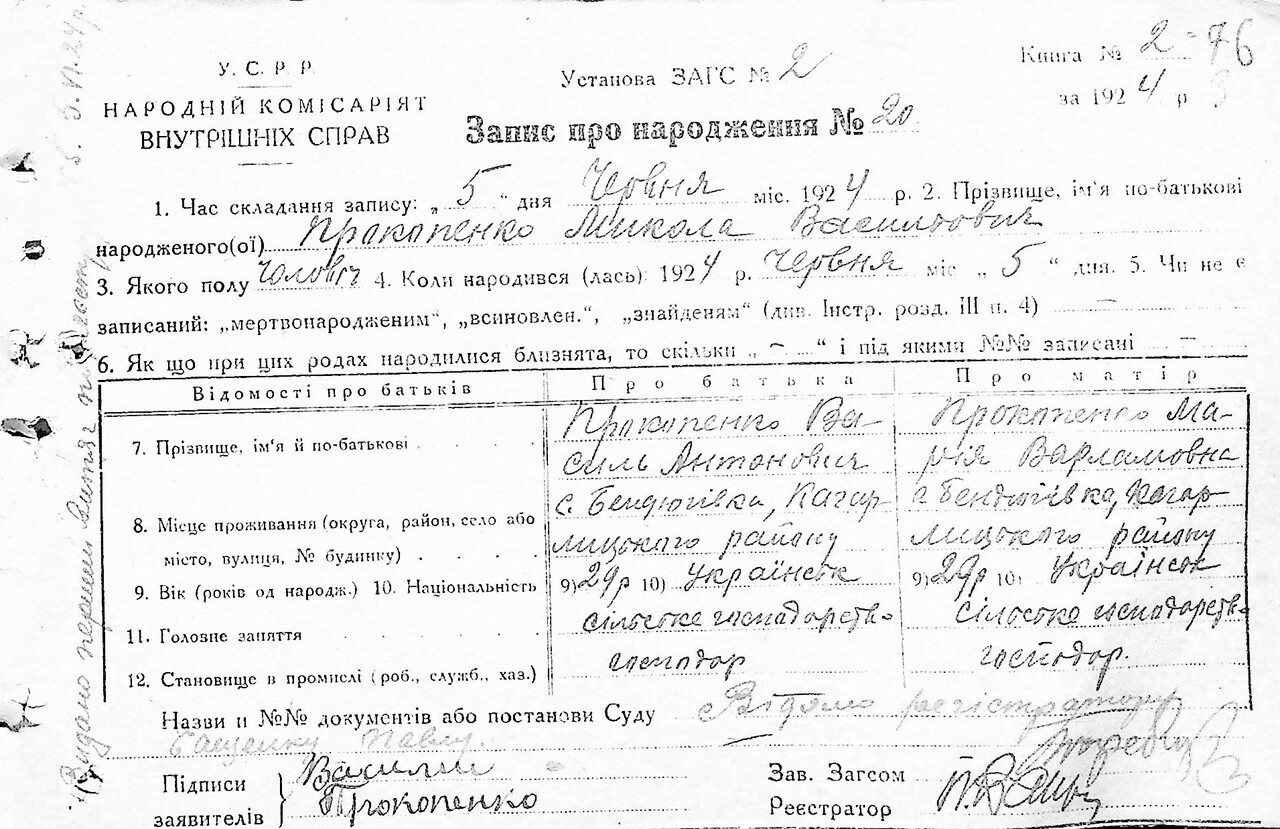 У. С. Р. Р.
НАРОДНІЙ КОМІСАРІЯТ
ВНУТРІШНІХ СПРАВ
Установа ЗАГС № 2
Книга № 2 - 76
за 1924 р 3
Запис про народження № 20
1. Час складання запису: „ 5 “ дня Червня міс. 1924 р. 2. Прізвище, ім'я по-батькові
народженого(ої) Прокопенко Микола Васильович
3. Якого полу Чоловіч 4. Коли народився (лась): 1924 р. Червня міс „ 5 “ дня. 5. Чи не є
записаний: „мертвонародженим“, „всиновлен.“, „знайденям“ (див. Інстр. розд. III п. 4) —
6. Як що при цих родах народилися близнята, то скільки „ – “ і під якими №№ записані –
Відомості про батьків
Про батька
Про матір
7. Прізвище, ім'я й по-батькові
Прокопенко Ва-
силь Антонович
Прокопенко Ма-
рія Варламовна
8. Місце проживання (округа, район, село або
місто, вулиця, № будинку)
с. Бендюгівка, Кагар
лицького району
с. Бендюгівка, Кагар-
лицького району
9. Вік (років од народж.) 10. Національність
9) 29р 10) Українськ
9) 29р 10) Українськ
11. Головне заняття
сільське господарств.
сільське господарств.
12. Становище в промислі (роб., служб., хаз.)
господор
господор.
Назви и №№ документів або постанови Суду Відомо регістратору
Павлу.
Підписи
заявителів
Василий
Прокопенко
Зав. Загсом
Реєстратор
Видано перший витяг
5. VI. 24 р.